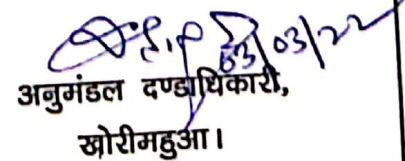 03/03/22
अनुमंडल दण्डाधिकारी,
खोरीमहुआ।